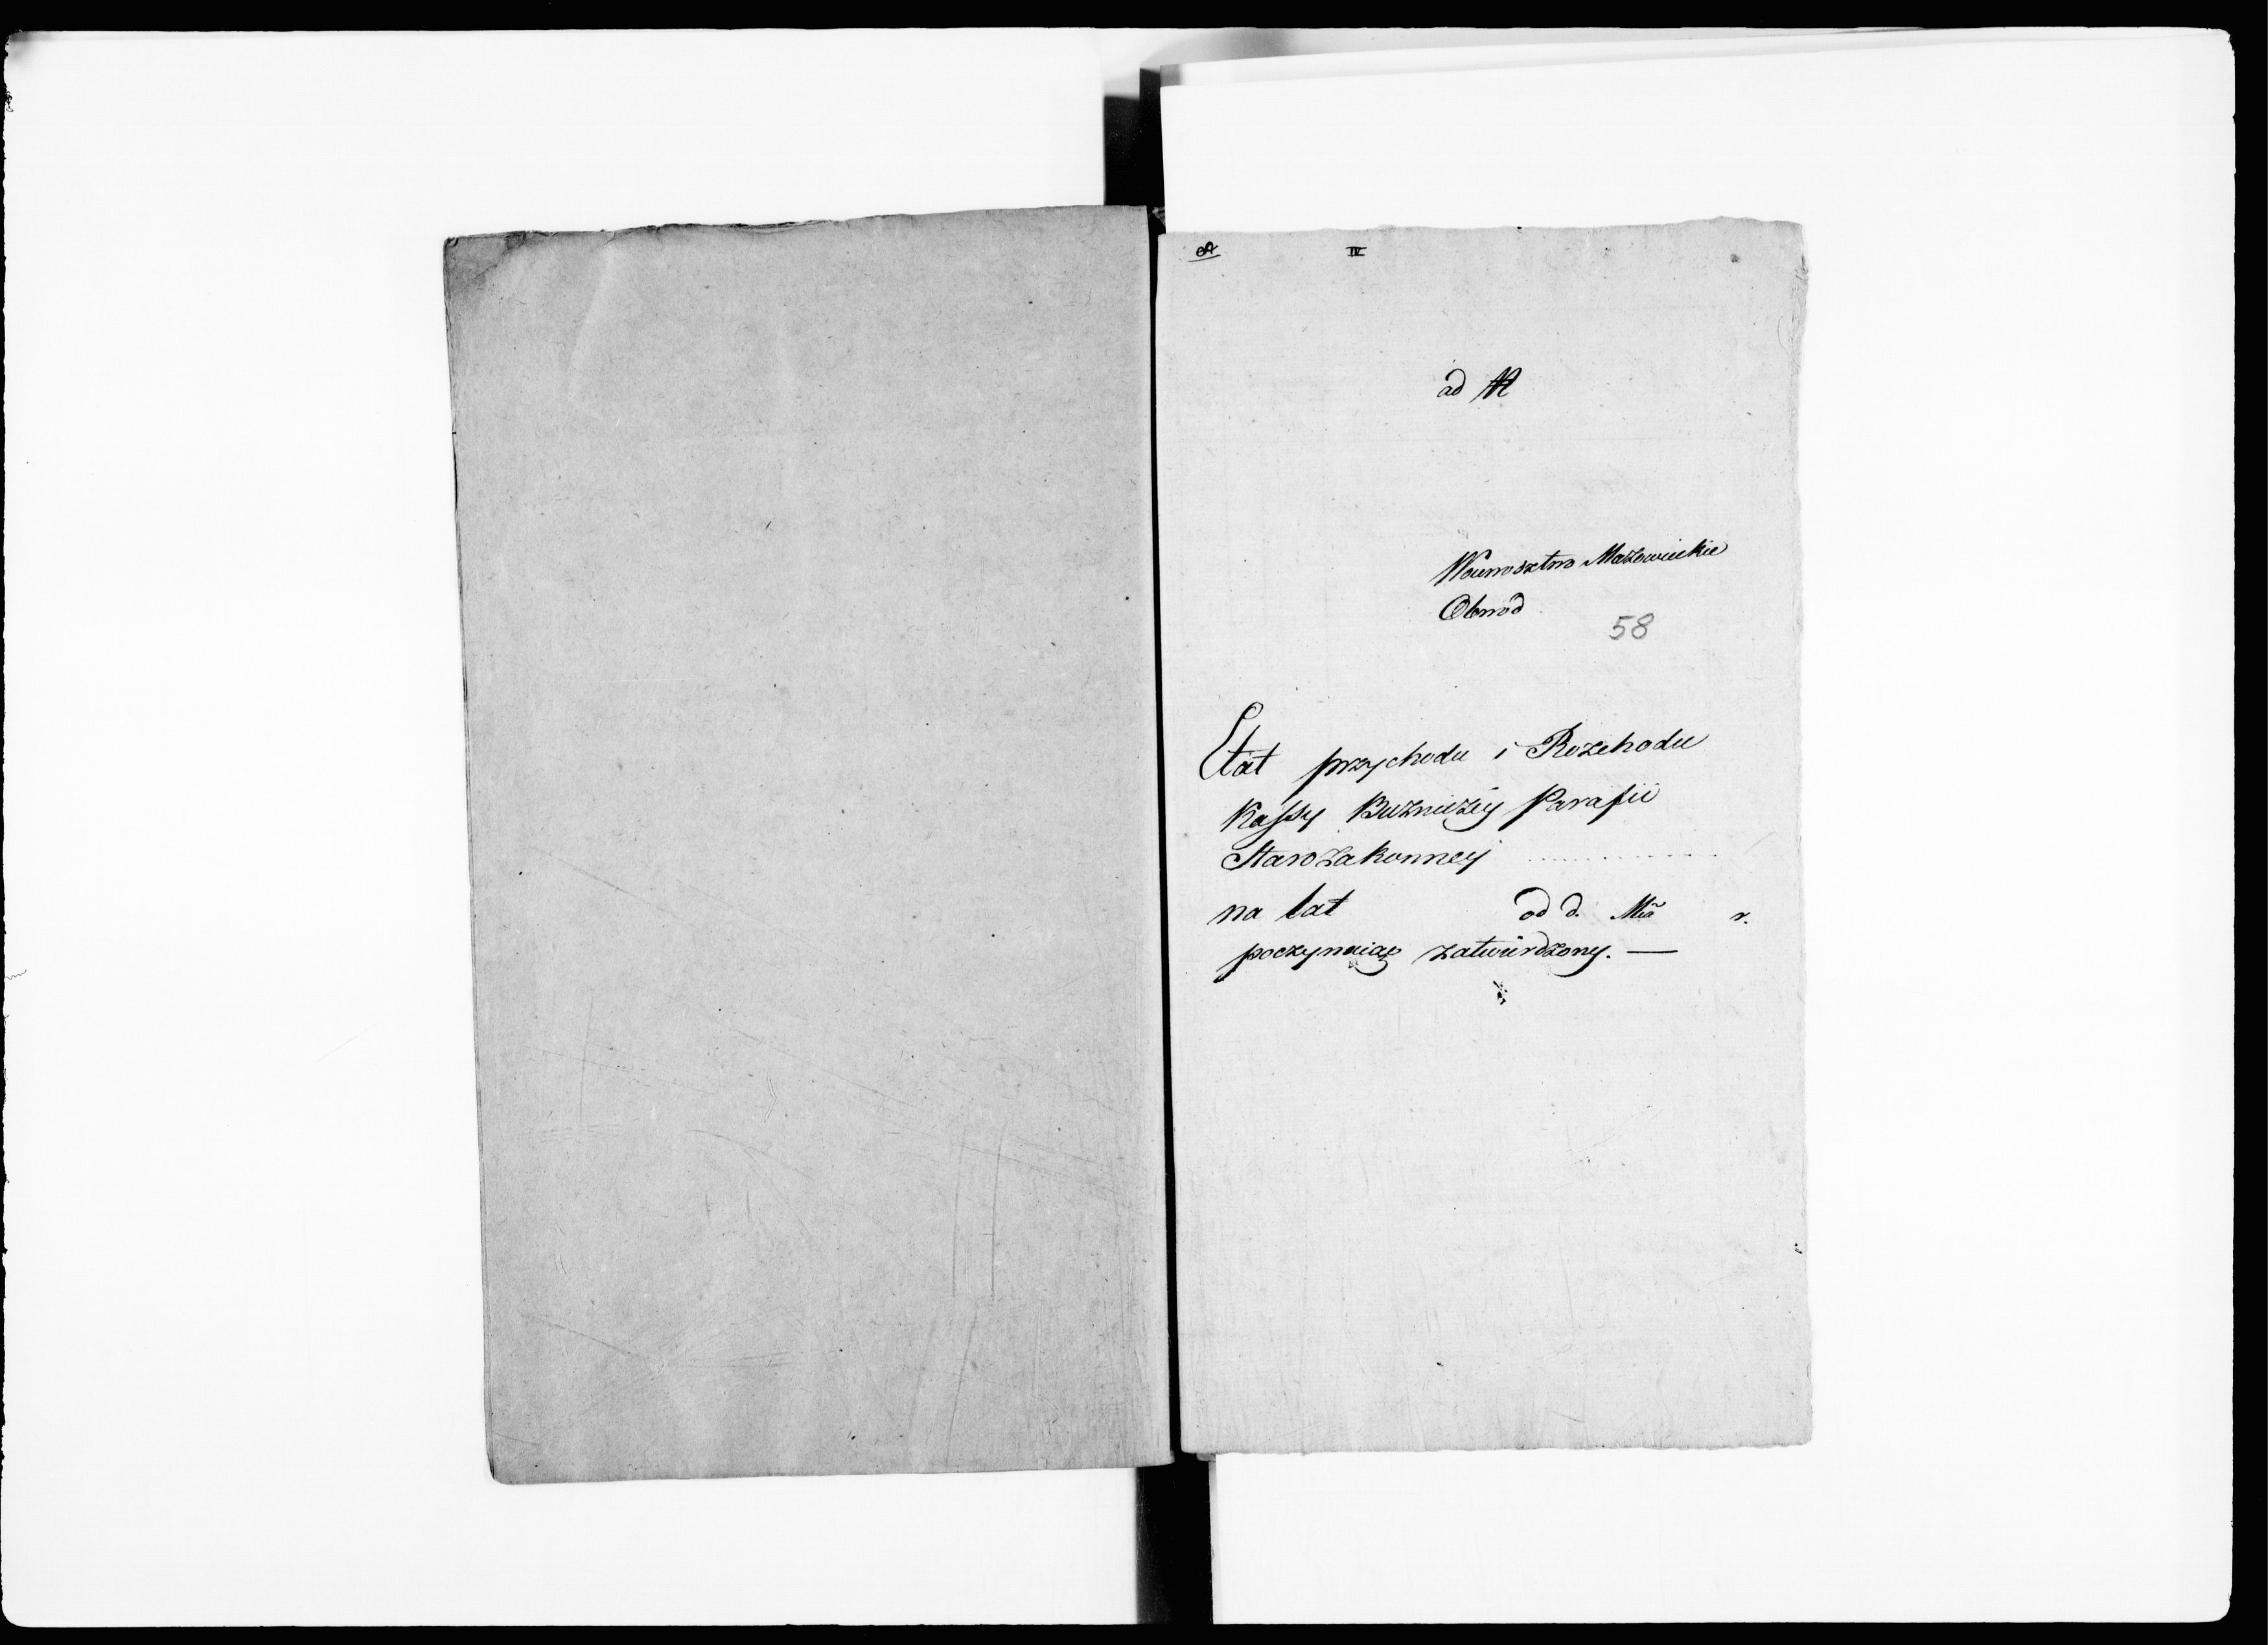 IV
ad N
Woiewodztwo Mazowieckie
Obwod
58
Etat przychodu i Rozchodu
Kassy Bużniczey Parafii
Starozakonney ............
na lat od d. Mca r.
poczynaiąc zatwierdzony. —